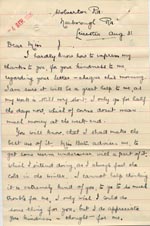 Wolverton Rd
Narborough Rd
Leicester Aug 31
Dear Miss
I hardly know how to express my
thanks to you for your kindness to me
regarding your letter & cheque this morning
I am sure it will be a great help to me as
my North is still my door, I only go for half
the day
much money at the week end.
You will know, that I shall make the
best use of it. Miss Butt advises me, to
get some warm underwear with a part of it,
which I intend doing, as I always feel the
cold in the winter, I cannot help thinking
it is extremely kind of you, to go to so much
trouble for me, I only wish I could do
some thing for you, but I do appreciate
your kindness & thought for me.